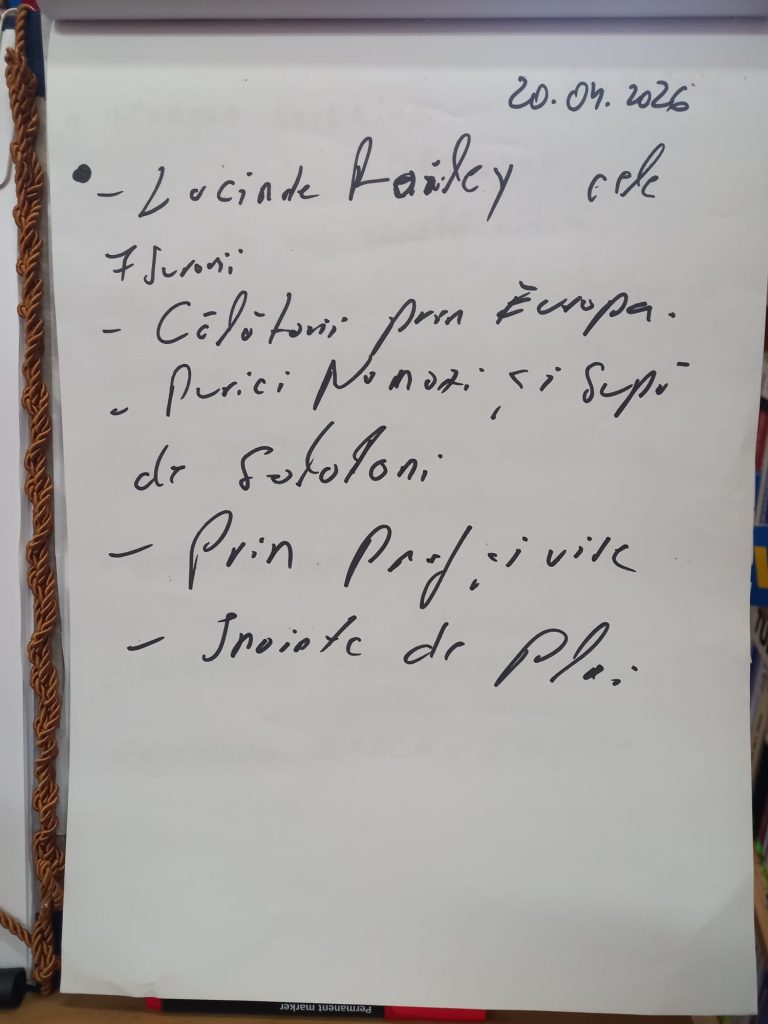 20.04.2026
- Lucinde Railey cele
7 surorii
- Călătorii prin Europa.
- Purici Nomazi și supă
de șobolani
- Prin praf și vise
- Inainte de Ploi
Permanent marker